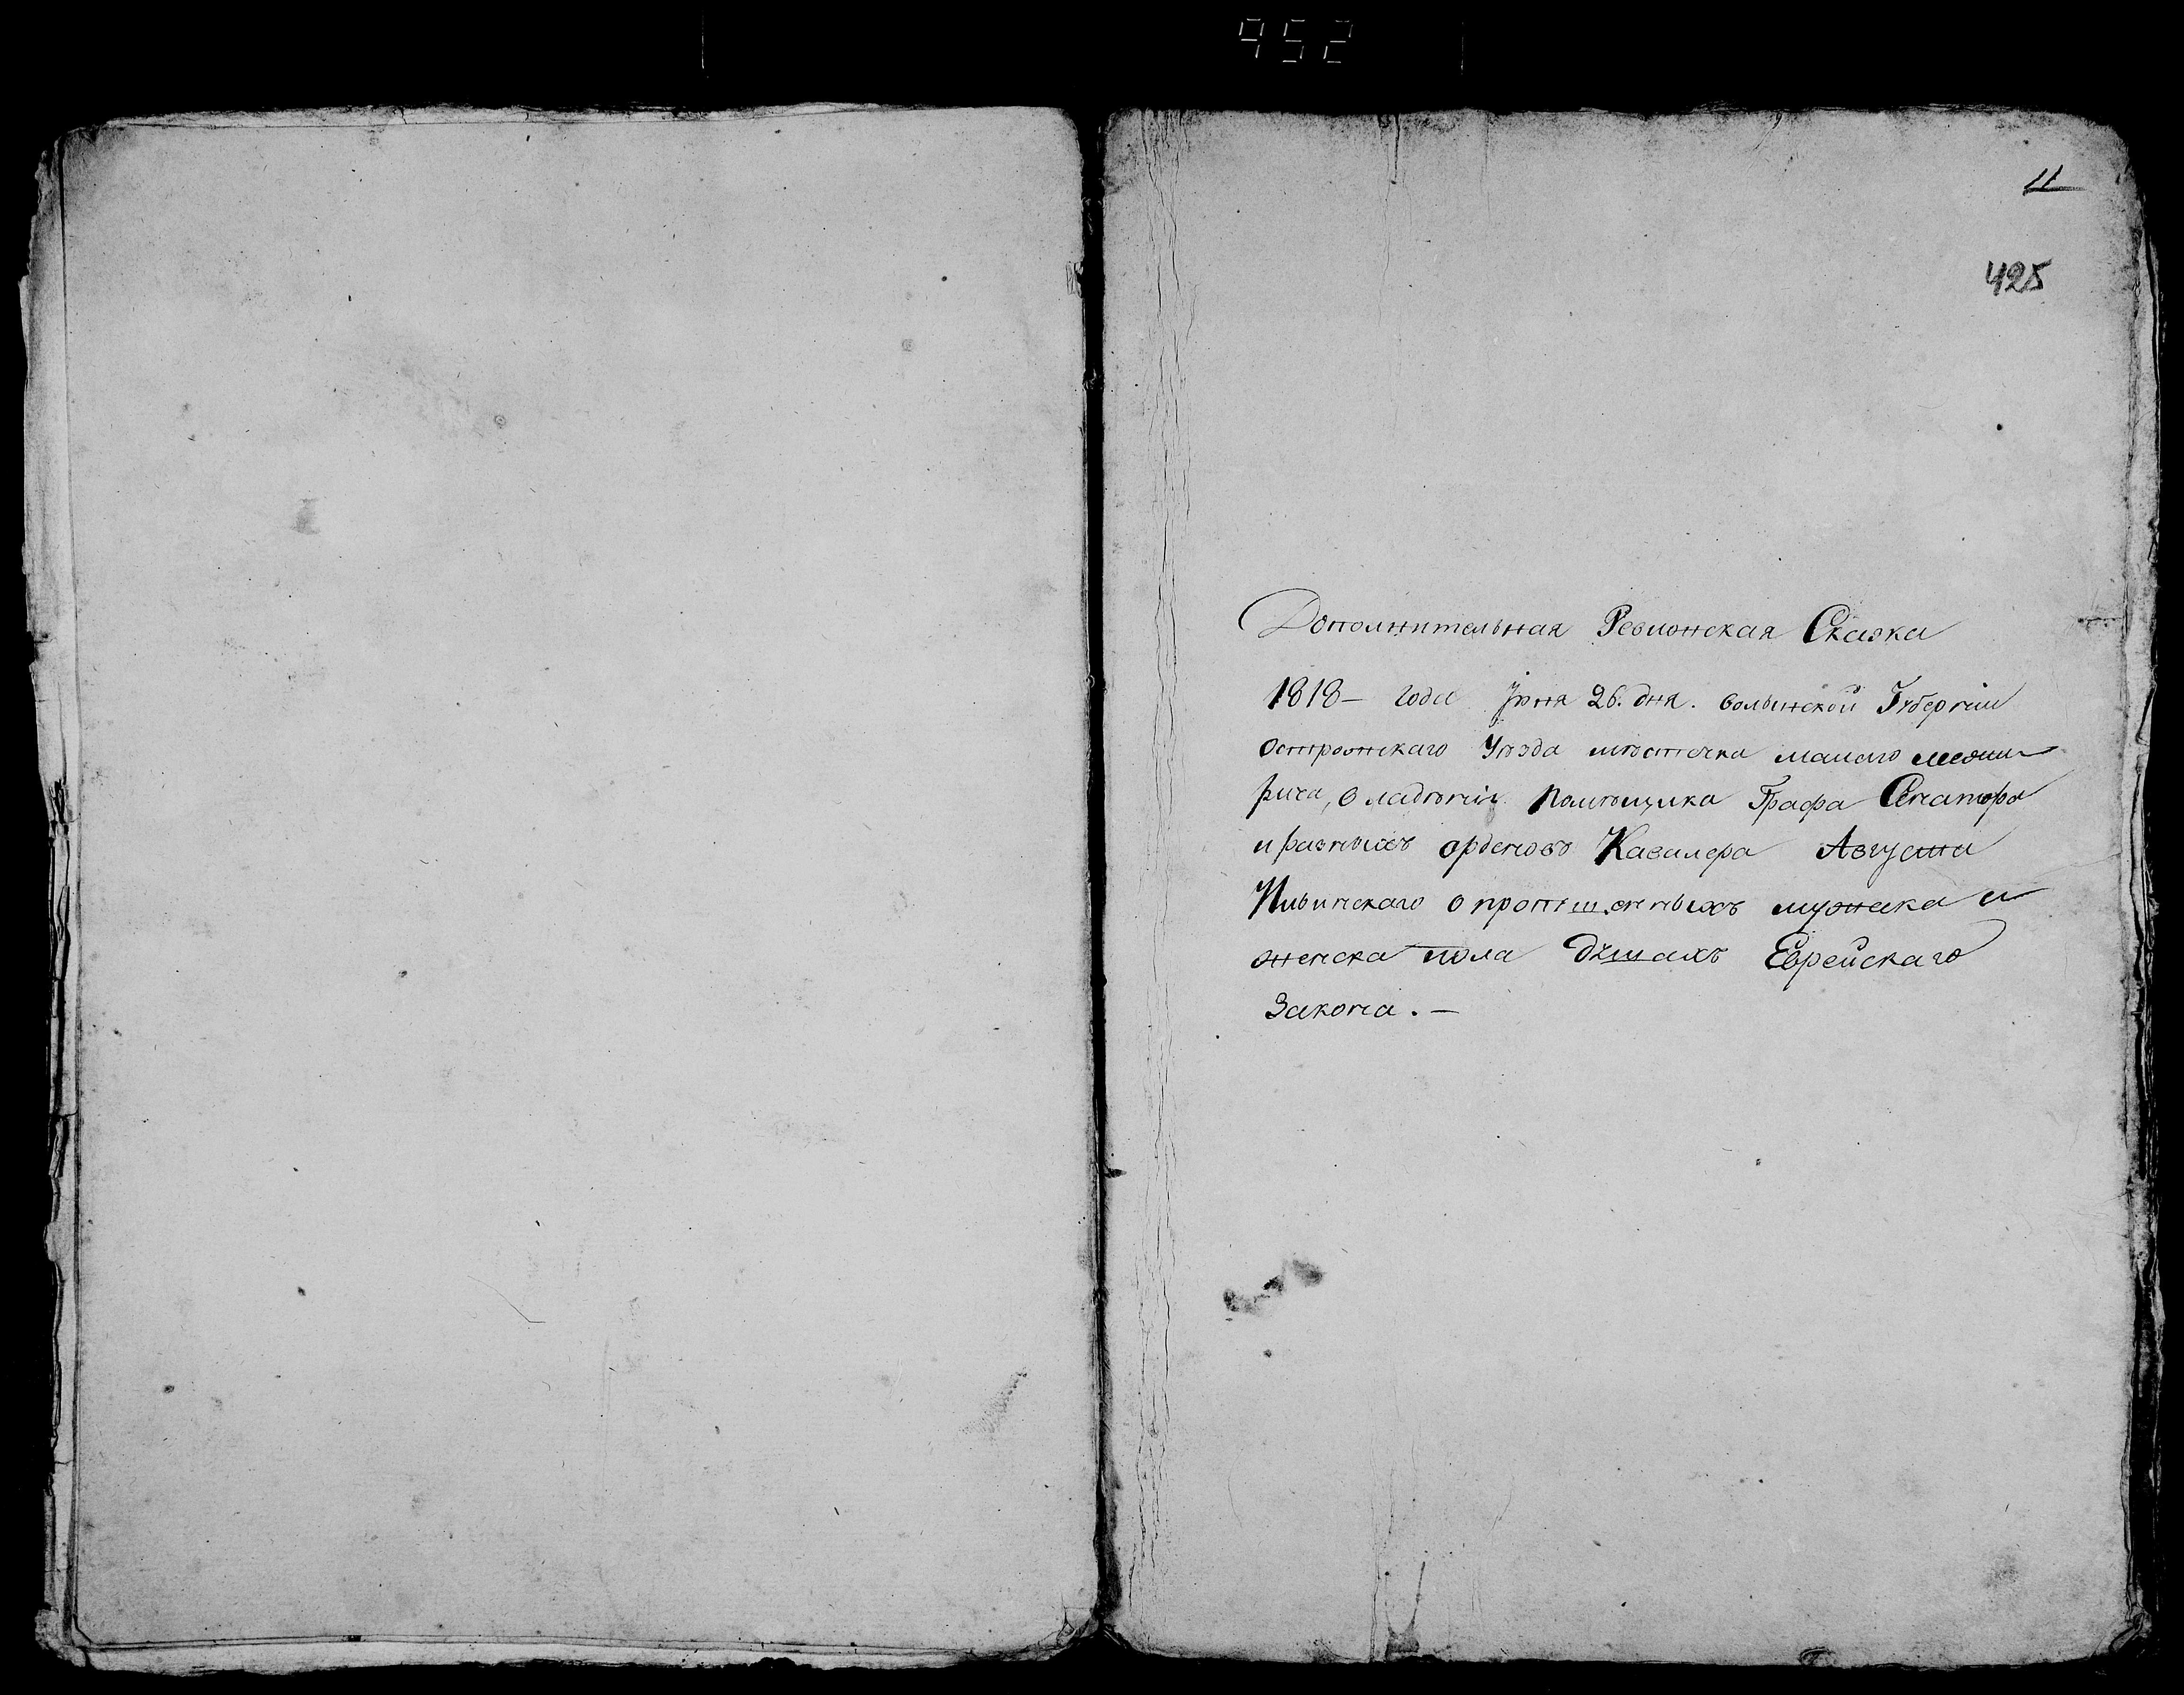 952
11
425
Дополнительная Ревизская Сказка
1818 – года Іюня 26. дня. волынской Губерніи
острожскаго Уѣзда мѣстечка малаго межи
рича, владѣнія Помѣщика Графа Сенатора
и разныхъ орденовъ Кавалера Августа
Ильинскаго о пропущенныхъ мужеска и
женска пола душахъ Еврейскаго
Закона. –